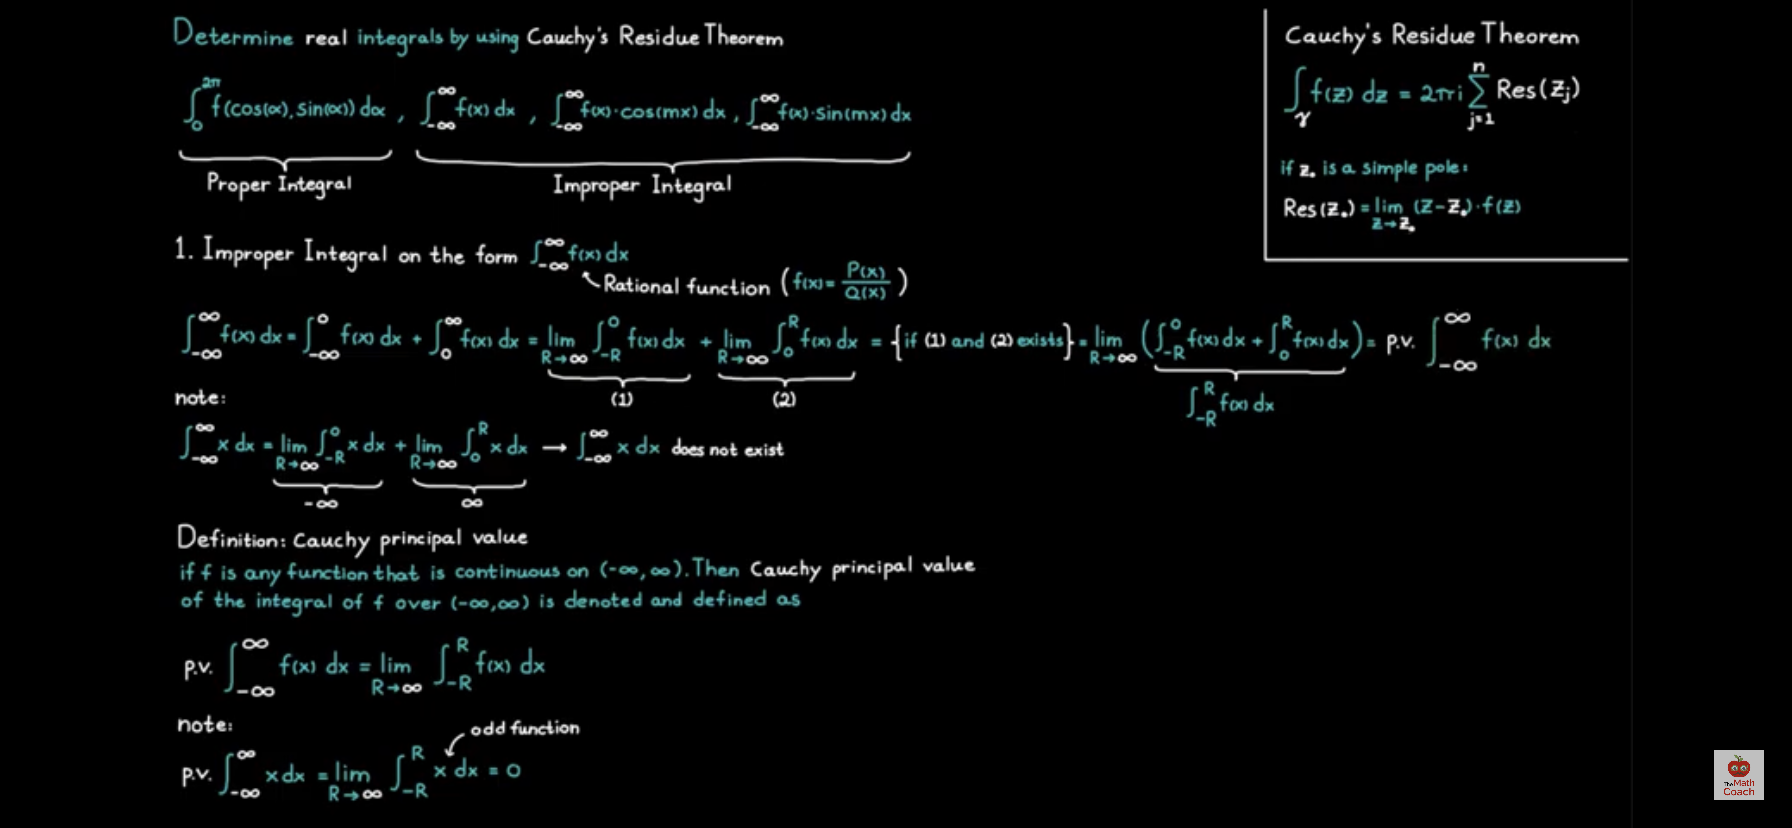 Determine real integrals by using Cauchy's Residue Theorem
∫₀^2π f(cos(α), sin(α)) dα , ∫_-∞^∞ f(x) dx , ∫_-∞^∞ f(x)·cos(mx) dx , ∫_-∞^∞ f(x)·sin(mx) dx
Proper Integral
Improper Integral
Cauchy's Residue Theorem
∫_γ f(z) dz = 2πi ∑_j=1^n Res(Zj)
if z₀ is a simple pole:
Res(Z₀) = lim_Z→Z₀ (Z-Z₀)·f(Z)
1. Improper Integral on the form ∫_-∞^∞ f(x) dx
Rational function ( f(x) = P(x)/Q(x) )
∫_-∞^∞ f(x) dx = ∫_-∞^0 f(x) dx + ∫_0^∞ f(x) dx = lim_R→∞ ∫_-R^0 f(x) dx + lim_R→∞ ∫_0^R f(x) dx = {if (1) and (2) exists} = lim_R→∞ ( ∫_-R^0 f(x) dx + ∫_0^R f(x) dx ) = p.v. ∫_-∞^∞ f(x) dx
(1)
(2)
∫_-R^R f(x) dx
note:
∫_-∞^∞ x dx = lim_R→∞ ∫_-R^0 x dx + lim_R→∞ ∫_0^R x dx → ∫_-∞^∞ x dx does not exist
-∞
∞
Definition: Cauchy principal value
if f is any function that is continuous on (-∞, ∞). Then Cauchy principal value
of the integral of f over (-∞,∞) is denoted and defined as
p.v. ∫_-∞^∞ f(x) dx = lim_R→∞ ∫_-R^R f(x) dx
note:
odd function
p.v. ∫_-∞^∞ x dx = lim_R→∞ ∫_-R^R x dx = 0
The Math
Coach